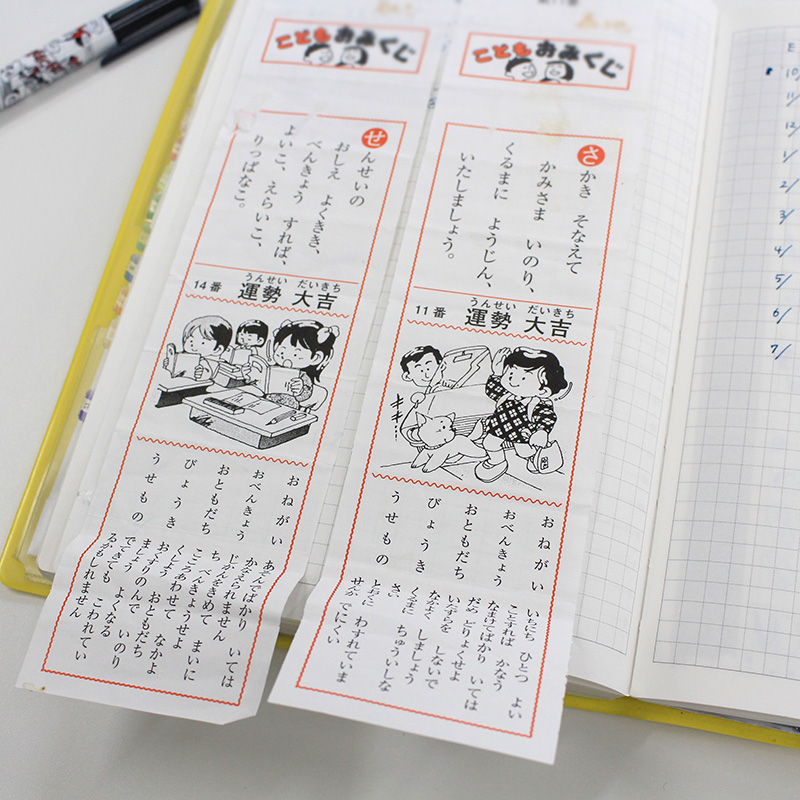 こどもおみくじ
せんせいの
おしえ よくきき、
べんきょう すれば、
よいこ、えらいこ、
りっぱなこ。
うんせい だいきち
14番 運勢 大吉
おねがい あそんでばかり いては
かなえられません
おべんきょう じかんをきめて まいに
ち べんきょうせよ
おともだち こころあわせて なかよ
くしよう
びょうき
うせもの でてきても こわれてい
るかもしれません
こどもおみくじ
さかき そなえて
かみさま いのり、
くるまに ようじん、
いたしましょう。
うんせい だいきち
11番 運勢 大吉
キキーッ
おねがい いちにち ひとつ よい
ことすれば かなう
おべんきょう なまけてばかり いては
だめ どりょくせよ
おともだち いたずらを しないで
なかよく しましょう
びょうき くるまに ちゅういしな
さい
うせもの わすれていま
せんか でにくい
10/
11/
12/
1/
2/
3/
4/
5/
6/
7/